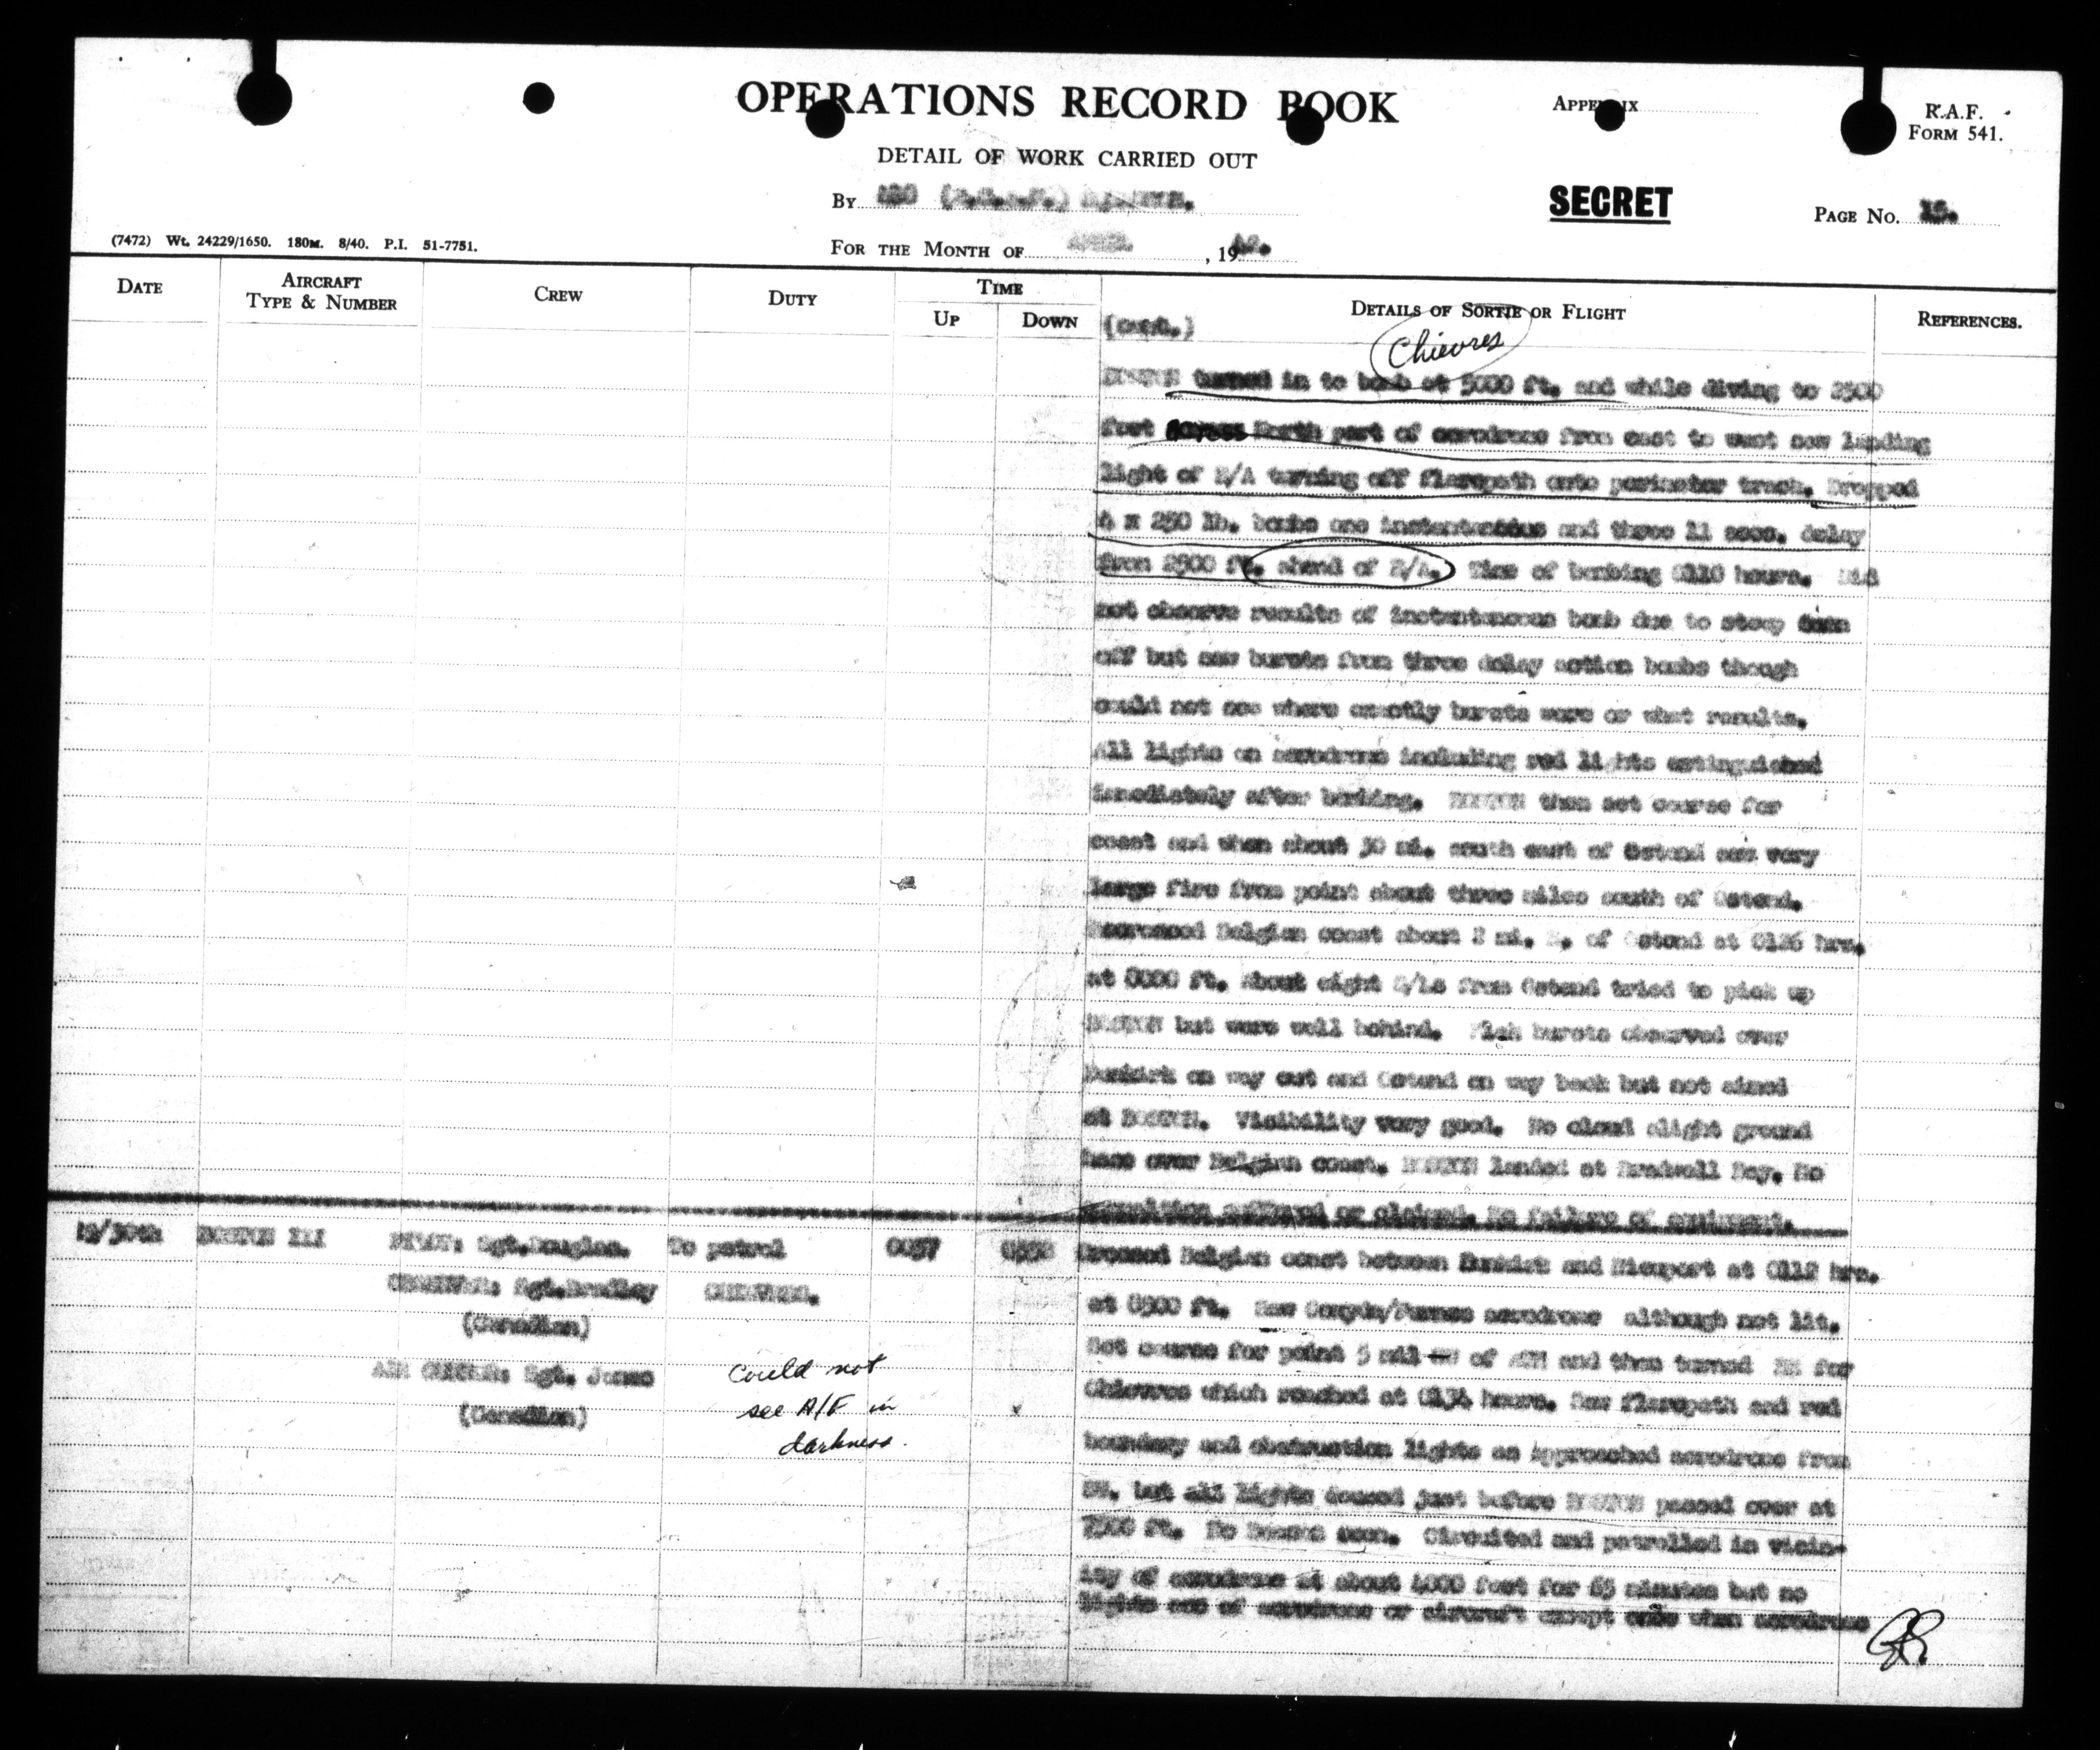 OPERATIONS RECORD BOOK
APPENDIX
R.A.F.
FORM 541.
DETAIL OF WORK CARRIED OUT
BY (R.C.A.F.) SQUADRON.
SECRET
PAGE No.
(7472) Wt. 24229/1650. 180M. 8/40. P.I. 51-7751.
FOR THE MONTH OF APRIL, 1942.
DATE
AIRCRAFT
TYPE & NUMBER
CREW
DUTY
TIME
UP
DOWN
DETAILS OF SORTIE OR FLIGHT
REFERENCES.
(cont.)
Chievres
BOSTON turned in to bomb at 5000 ft. and while diving to 2500
feet across North part of aerodrome from east to west saw landing
light of E/A turning off flarepath onto perimeter track. Dropped
4 x 250 lb. bombs one instantaneous and three 11 secs. delay
from 2500 ft. ahead of E/A. Time of bombing 0110 hours. Did
not observe results of instantaneous bomb due to steep turn
off but saw bursts from three delay action bombs though
could not see where exactly bursts were or what results.
All lights on aerodrome including red lights extinguished
immediately after bombing. BOSTON then set course for
coast and when about 30 mi. south east of Ostend saw very
large fire from point about three miles south of Ostend.
Recrossed Belgian coast about 2 mi. of Ostend at 0126 hrs.
at 8000 ft. About eight S/Ls from Ostend tried to pick up
BOSTON but were well behind. Flak bursts observed over
Dunkirk on way out and Ostend on way back but not aimed
at BOSTON. Visibility very good. No cloud slight ground
haze over Belgian coast. BOSTON landed at Bradwell Bay. No
or claimed. No failure of equipment.
29/30th BOSTON III PILOT: Sgt. Douglas. To patrol 0037 Crossed Belgian coast between Dunkirk and Nieuport at 0112 hrs.
OBSERVER: Sgt. Bradley CHIEVRES. at 6500 ft. Saw Coxyde/Furnes aerodrome although not lit.
(Canadian)
Set course for point 5 mil of ATH and then turned for
AIR GUNNER: Sgt. James
(Canadian)
Could not
see A/F in
darkness.
Chievres which reached at 0134 hours. Saw flarepath and red
boundary and obstruction lights as approached aerodrome from
but all lights doused just before BOSTON passed over at
ft. No seen. Circuited and patrolled in vicin-
ity of aerodrome at about 4000 feet for 45 minutes but no
lights of aerodrome or aircraft except when aerodrome